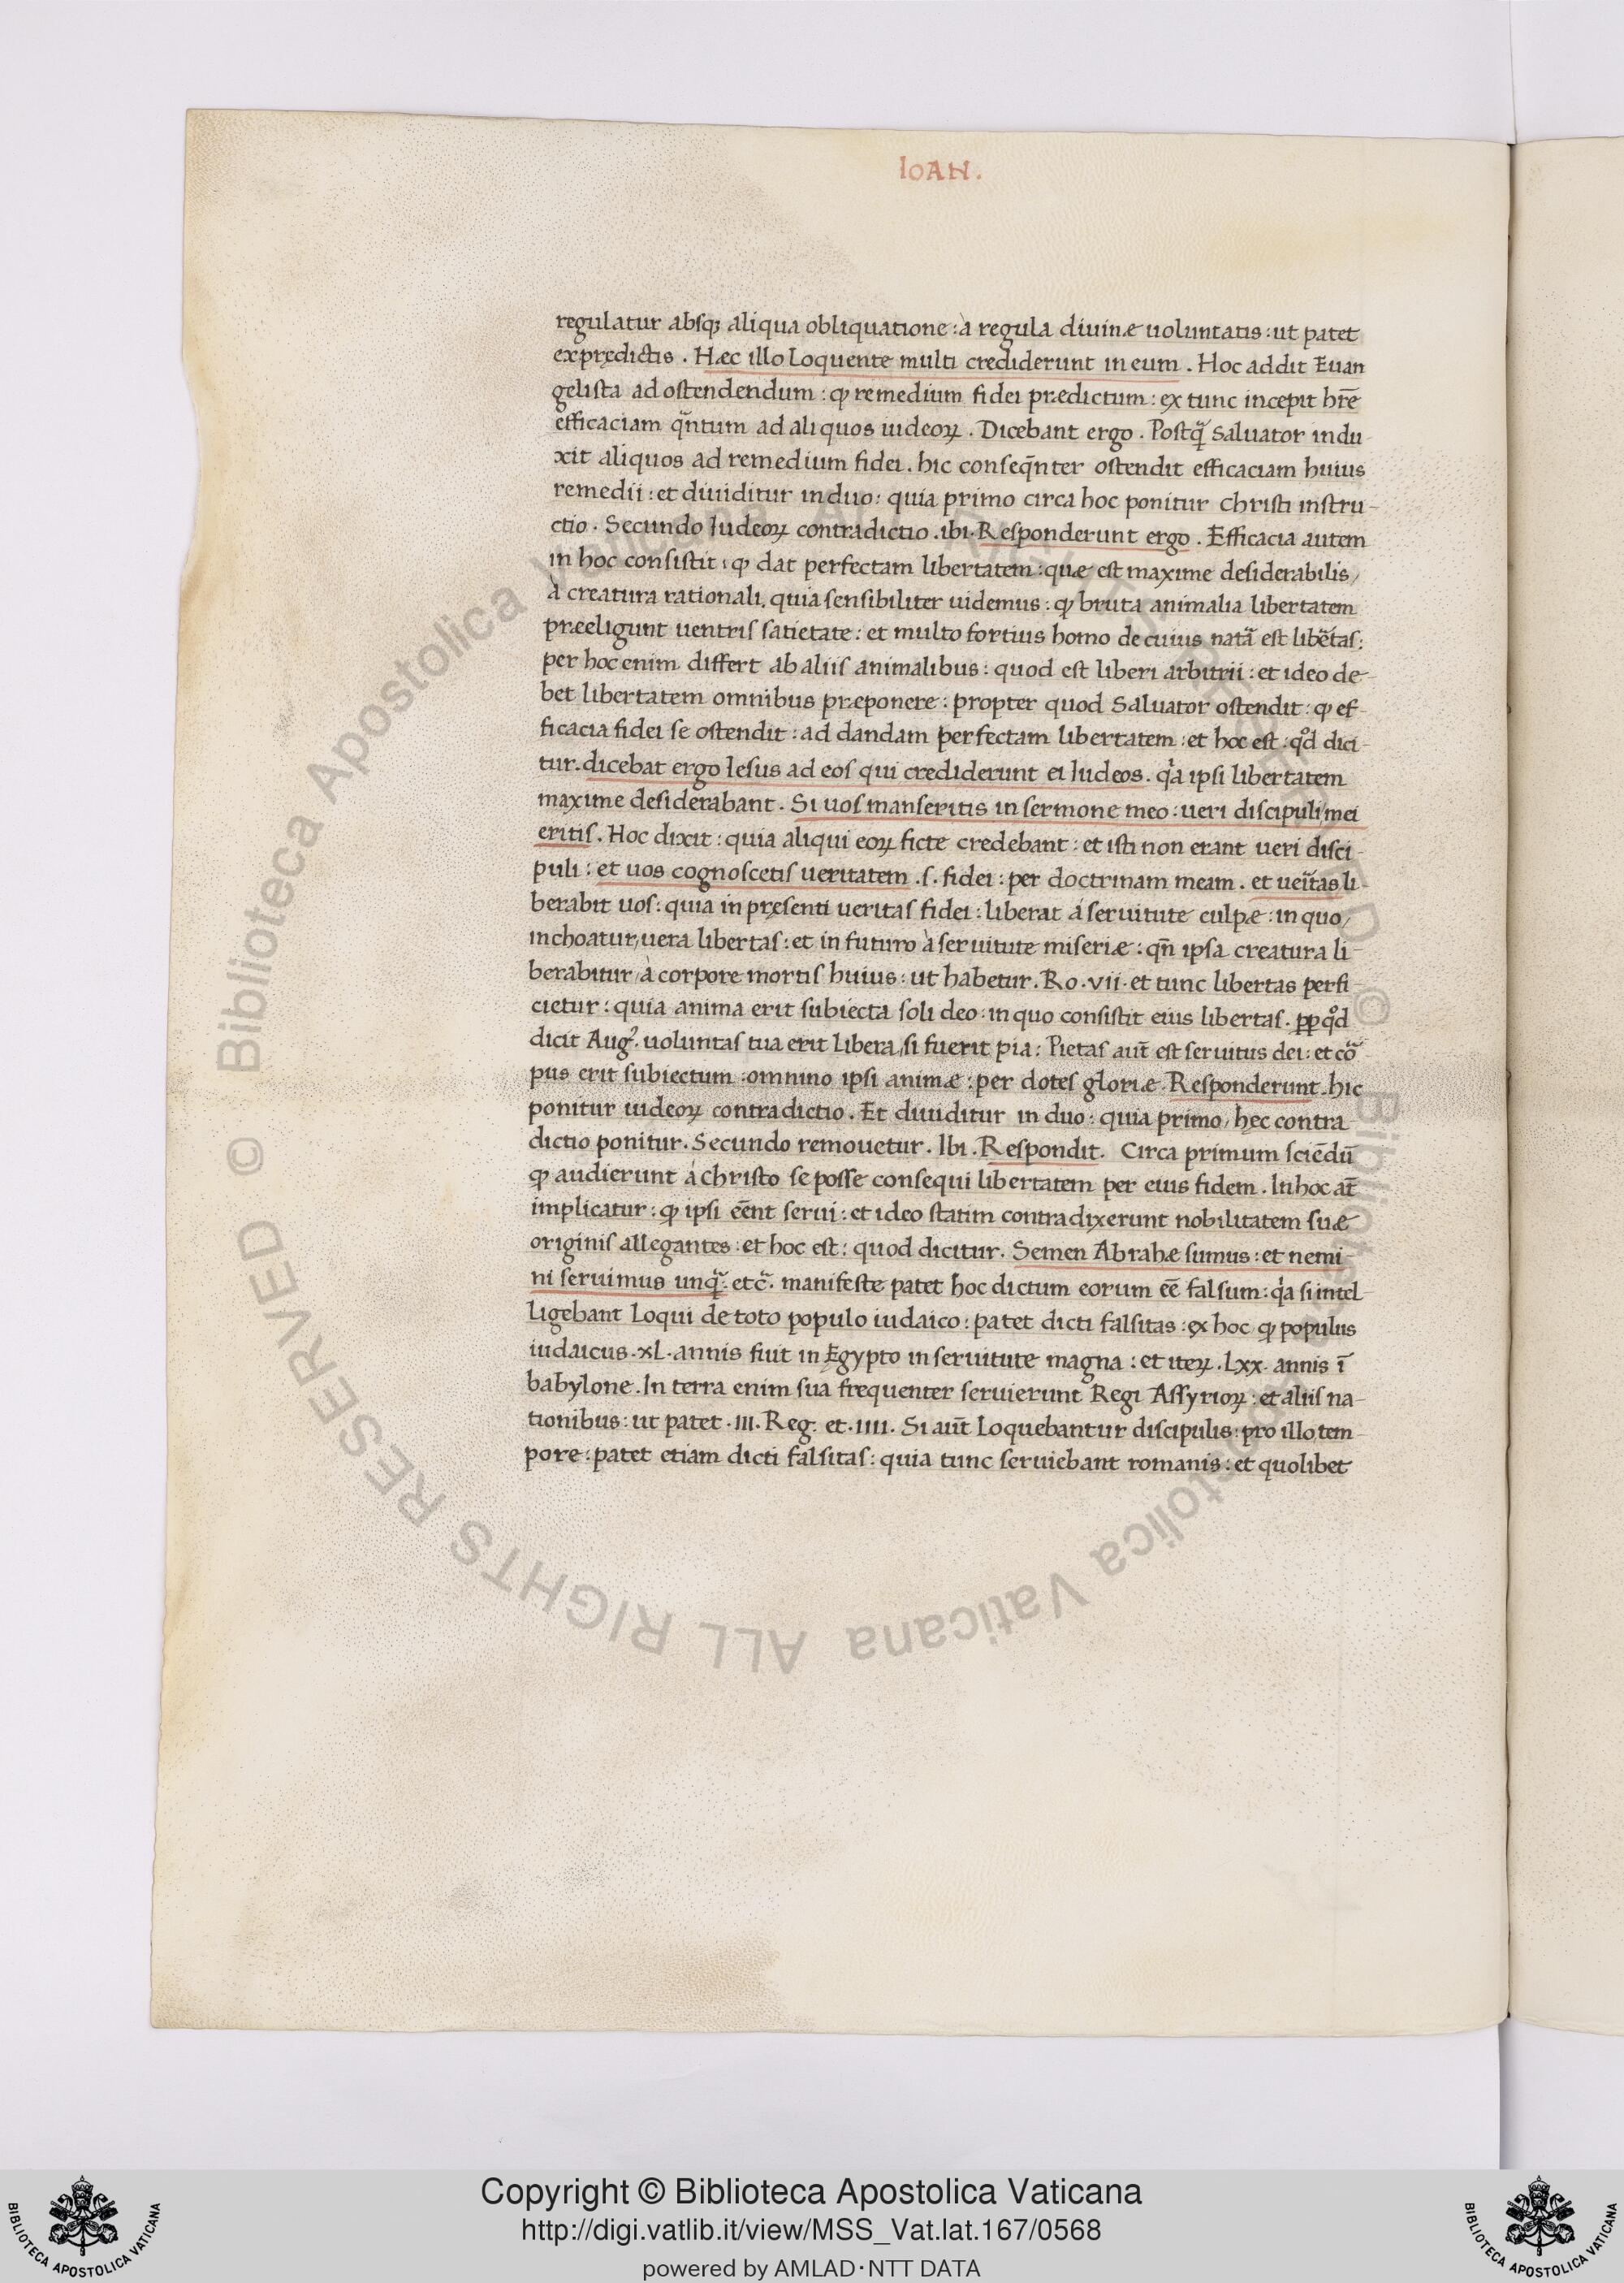 IOAN.
regulatur absqꝫ aliqua obliquatione : à regula diuinæ uoluntatis : ut patet
ex prędictis . Hæc illo loquente multi crediderunt in eum . Hoc addit Euan
gelista ad ostendendum : ꝙ remedium fidei prædictum : ex tunc incepit hr̃e
efficaciam q̃ntum ad aliquos iudeoꝝ . Dicebant ergo . Postq̃ Saluator indu-
xit aliquos ad remedium fidei . hic conseq̃nter ostendit efficaciam huius
remedii : et diuiditur in duo : quia primo circa hoc ponitur Christi instru-
ctio . Secundo Iudeoꝝ contradictio . ibi . Responderunt ergo . Efficacia autem
in hoc consistit : ꝙ dat perfectam libertatem : quæ est maxime desiderabilis /
à creatura rationali . quia sensibiliter uidemus : ꝙ bruta animalia libertatem
præeligunt uentris satietate : et multo fortius homo de cuius nat̃a est lib̃etas :
per hoc enim differt ab aliis animalibus : quod est liberi arbitrii : et ideo de-
bet libertatem omnibus præponere : propter quod Saluator ostendit : ꝙ ef-
ficacia fidei se ostendit : ad dandam perfectam libertatem : et hoc est : qͦd dici-
tur . dicebat ergo Iesus ad eos qui crediderunt ei Iudeos . qͣa ipsi libertatem
maxime desiderabant . Si uos manseritis in sermone meo : ueri discipuli mei
eritis . Hoc dixit : quia aliqui eoꝝ ficte credebant : et isti non erant ueri disci-
puli : et uos cognoscetis ueritatem . s . fidei : per doctrinam meam . et uer̃itas li-
berabit uos : quia in pręsenti ueritas fidei : liberat à seruitute culpæ : in quo /
inchoatur / uera libertas : et in futuro à seruitute miseriæ : qn̄ ipsa creatura li-
berabitur / à corpore mortis huius : ut habetur . Ro . vii . et tunc libertas perfi-
cietur : quia anima erit subiecta soli deo : in quo consistit eius libertas . ꝓp qͦd
dicit Augꝰ . uoluntas tua erit libera / si fuerit pia : Pietas aut̄ est seruitus dei : et cõ
pus erit subiectum : omnino ipsi animæ : per dotes gloriæ . Responderunt . hic
ponitur iudeoꝝ contradictio . Et diuiditur in duo : quia primo / hęc contra
dictio ponitur . Secundo remouetur . Ibi . Respondit . Circa primum sciēdū
ꝙ audierunt à christo se posse consequi libertatem per eius fidem . In hoc at̄
implicatur : ꝙ ipsi eēnt serui : et ideo statim contradixerunt nobilitatem suæ
originis allegantes : et hoc est : quod dicitur . Semen Abrahæ sumus : et nemi-
ni seruimus unq̃ : etc̃ . manifeste patet hoc dictum eorum eē falsum : qͣa si intel
ligebant loqui de toto populo iudaico : patet dicti falsitas : ex hoc ꝙ populus
iudaicus . xL . annis fuit in Egypto in seruitute magna : et iteꝝ . Lxx . annis ī
babylone . In terra enim sua frequenter seruierunt Regi Assyrioꝝ : et aliis na-
tionibus : ut patet . III . Reg . et . IIII . Si aut̄ loquebantur discipulis : pro illo tem-
pore : patet etiam dicti falsitas : quia tunc seruiebant romanis : et quolibet
© Biblioteca Apostolica Vaticana ALL RIGHTS RESERVED
© Biblioteca Apostolica Vaticana ALL RIGHTS RESERVED
Copyright © Biblioteca Apostolica Vaticana
http://digi.vatlib.it/view/MSS_Vat.lat.167/0568
powered by AMLAD·NTT DATA
BIBLIOTECA APOSTOLICA VATICANA
BIBLIOTECA APOSTOLICA VATICANA